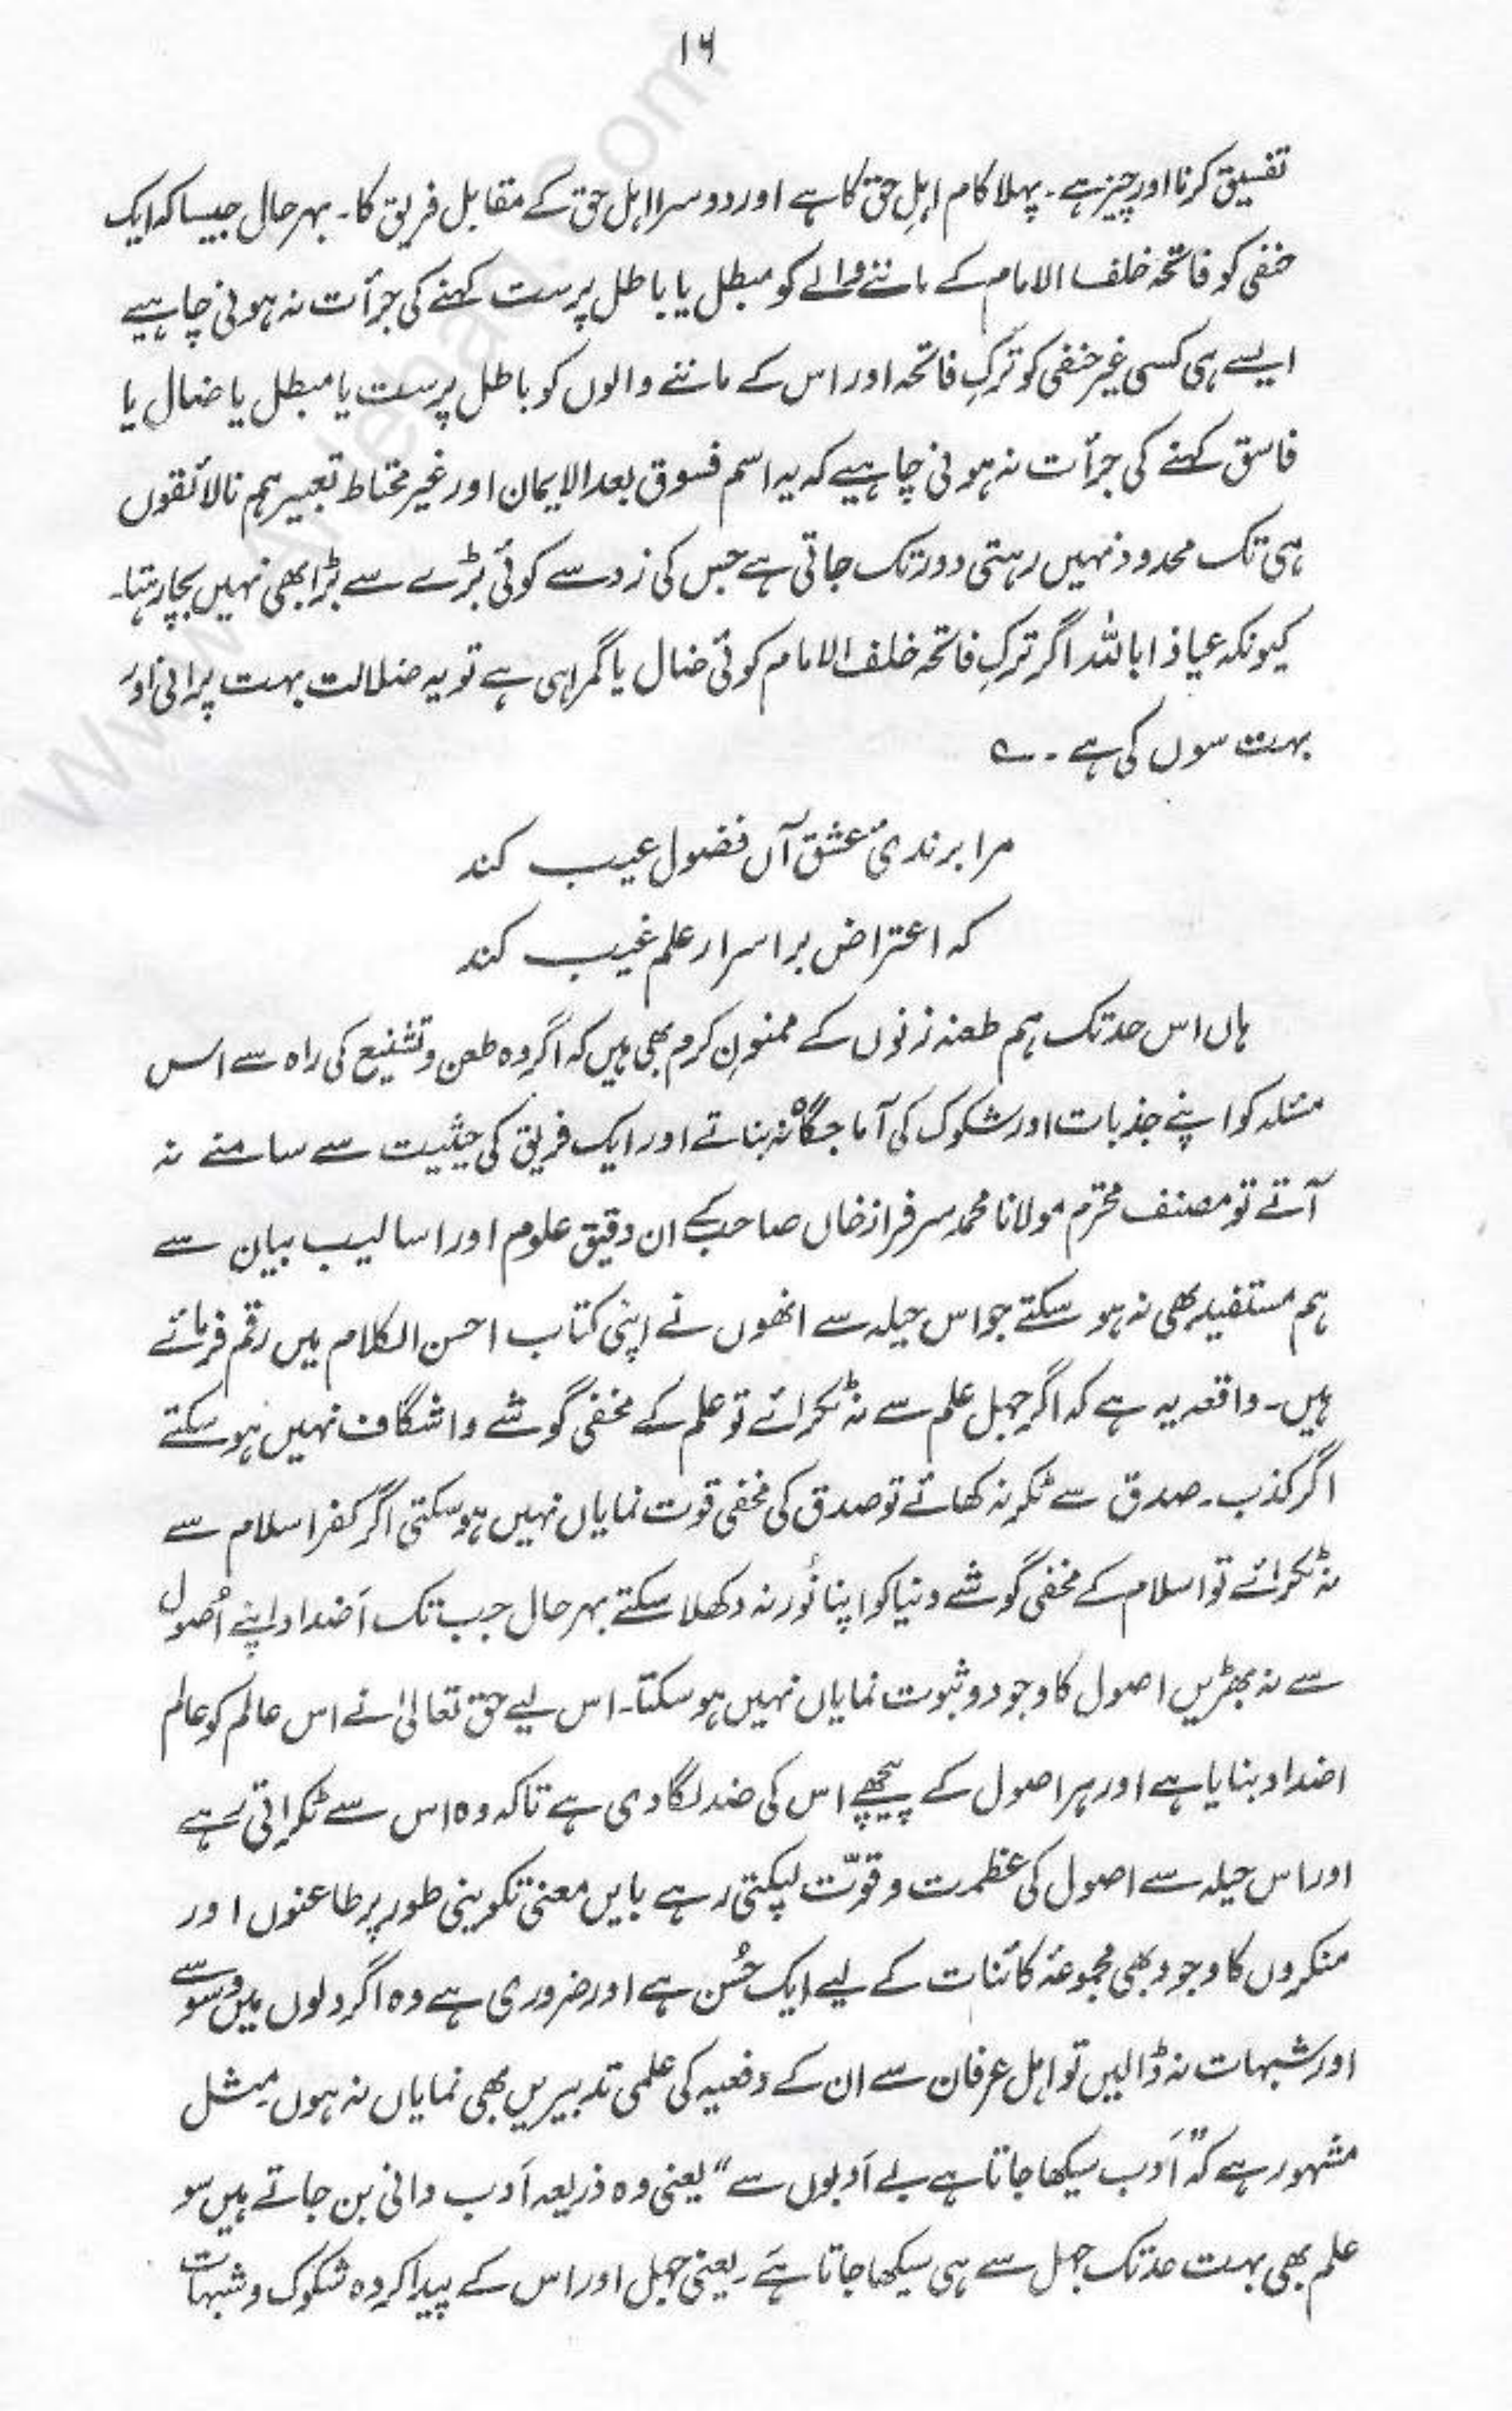 ۱۶
تفسیق کرنا اور چیز ہے۔ پہلا کام اہلِ حق کا ہے اور دوسرا اہل حق کے مقابل فریق کا۔ بہرحال جیسا کہ ایک
حنفی کو فاتحہ خلف الامام کے ماننے والے کو مبطل یا باطل پرست کہنے کی جرأت نہ ہونی چاہیے
ایسے ہی کسی غیر حنفی کو ترکِ فاتحہ اور اس کے ماننے والوں کو باطل پرست یا مبطل یا ضال یا
فاسق کہنے کی جرأت نہ ہونی چاہیے کہ یہ اسم فسوق بعد الایمان اور غیر محتاط تعبیر ہم نالائقوں
ہی تک محدود نہیں رہتی دور تک جاتی ہے جس کی زد سے کوئی بڑے سے بڑا بھی نہیں بچا رہتا۔
کیونکہ عیاذاً باللہ اگر ترکِ فاتحہ خلف الامام کوئی ضال یا گمراہی ہے تو یہ ضلالت بہت پرانی اور
بہت سوں کی ہے۔ ے
مرا برندیٔ عشق آں فضول عیب کند
کہ اعتراض بر اسرار علم غیب کند
ہاں اس حد تک ہم طعنہ زنوں کے ممنونِ کرم بھی ہیں کہ اگر وہ طعن و تشنیع کی راہ سے اس
مسئلہ کو اپنے جذبات اور شکوک کی آماجگاہ نہ بناتے اور ایک فریق کی حیثیت سے سامنے نہ
آتے تو مصنف محترم مولانا محمد سرفراز خاں صاحب کے ان دقیق علوم اور اسالیب بیان سے
ہم مستفید بھی نہ ہو سکتے جو اس حیلہ سے انھوں نے اپنی کتاب احسن الکلام میں رقم فرمائے
ہیں۔ واقعہ یہ ہے کہ اگر جہل علم سے نہ ٹکرائے تو علم کے مخفی گوشے واشگاف نہیں ہو سکتے
اگر کذب۔ صدق سے ٹکر نہ کھائے تو صدق کی مخفی قوت نمایاں نہیں ہو سکتی اگر کفر اسلام سے
نہ ٹکرائے تو اسلام کے مخفی گوشے دنیا کو اپنا نُور نہ دکھلا سکتے بہر حال جب تک اَضداد اپنے اُصول
سے نہ بھڑیں اصول کا وجود و ثبوت نمایاں نہیں ہو سکتا۔ اس لیے حق تعالیٰ نے اس عالم کو عالم
اضداد بنایا ہے اور ہر اصول کے پیچھے اس کی ضد لگا دی ہے تاکہ وہ اس سے ٹکراتی رہے
اور اس حیلہ سے اصول کی عظمت و قوّت لپکتی رہے بایں معنیٰ تکوینی طور پر طاعنوں اور
منکروں کا وجود بھی مجموعۂ کائنات کے لیے ایک حُسن ہے اور ضروری ہے وہ اگر دلوں میں وسوسے
اور شبہات نہ ڈالیں تو اہل عرفان سے ان کے دفعیہ کی علمی تدبیریں بھی نمایاں نہ ہوں۔ مثل
مشہور ہے کہ "اَدب سیکھا جاتا ہے بے اَدبوں سے" یعنی وہ ذریعہ اَدب دانی بن جاتے ہیں سو
علم بھی بہت حد تک جہل سے ہی سیکھا جاتا ہے۔ یعنی جہل اور اس کے پیدا کردہ شکوک و شبہات